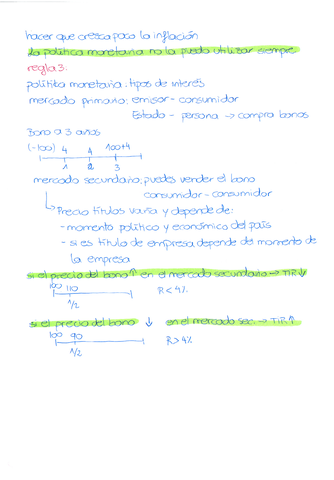 hacer que crezca poco la inflación
la política monetaria no la puedo utilizar siempre
regla 3:
política monetaria: tipos de interés
mercado primario: emisor - consumidor
Estado - persona → compra bonos
Bono a 3 años
(-100) 4 4 100+4
1 2 3
mercado secundario: puedes vender el bono
consumidor - consumidor
↳ Precio títulos varía y depende de:
- momento político y económico del país
- si es título de empresa depende de momento de
la empresa
si el precio del bono ↑ en el mercado secundario → TIR ↓
100 110 R < 4%
1/2
si el precio del bono ↓ en el mercado sec. → TIR ↑
100 90 R > 4%
1/2